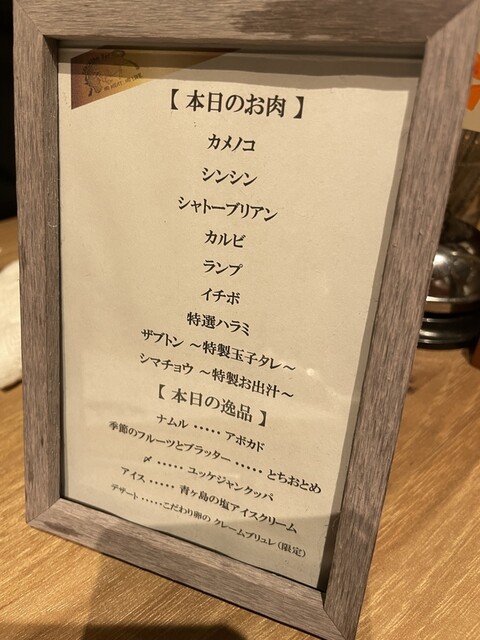 【 本日のお肉 】
カメノコ
シンシン
シャトーブリアン
カルビ
ランプ
イチボ
特選ハラミ
ザブトン ～特製玉子タレ～
シマチョウ ～特製お出汁～
【 本日の逸品 】
ナムル ・・・・・ アボカド
季節のフルーツとブラッター ・・・・・ とちおとめ
〆 ・・・・・ ユッケジャンクッパ
アイス ・・・・・ 青ヶ島の塩アイスクリーム
デザート ・・・・・こだわり卵の クレームブリュレ（限定）